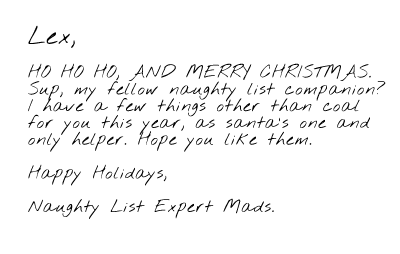 Lex,
HO HO HO, AND MERRY CHRISTMAS.
Sup, my fellow naughty list companion?
I have a few things other than coal
for you this year, as santa's one and
only helper. Hope you like them.
Happy Holidays,
Naughty List Expert Mads.